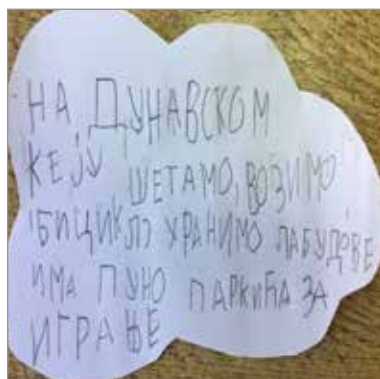 НА ДУНАВСКОМ
КЕЈУ ШЕТАМО, ВОЗИМО
БИЦИКЛЗ ХРАНИМО ЛАБУДОВЕ
ИМА ПУЮ ПАРКИЋА ЗА
ИГРАЊЕ